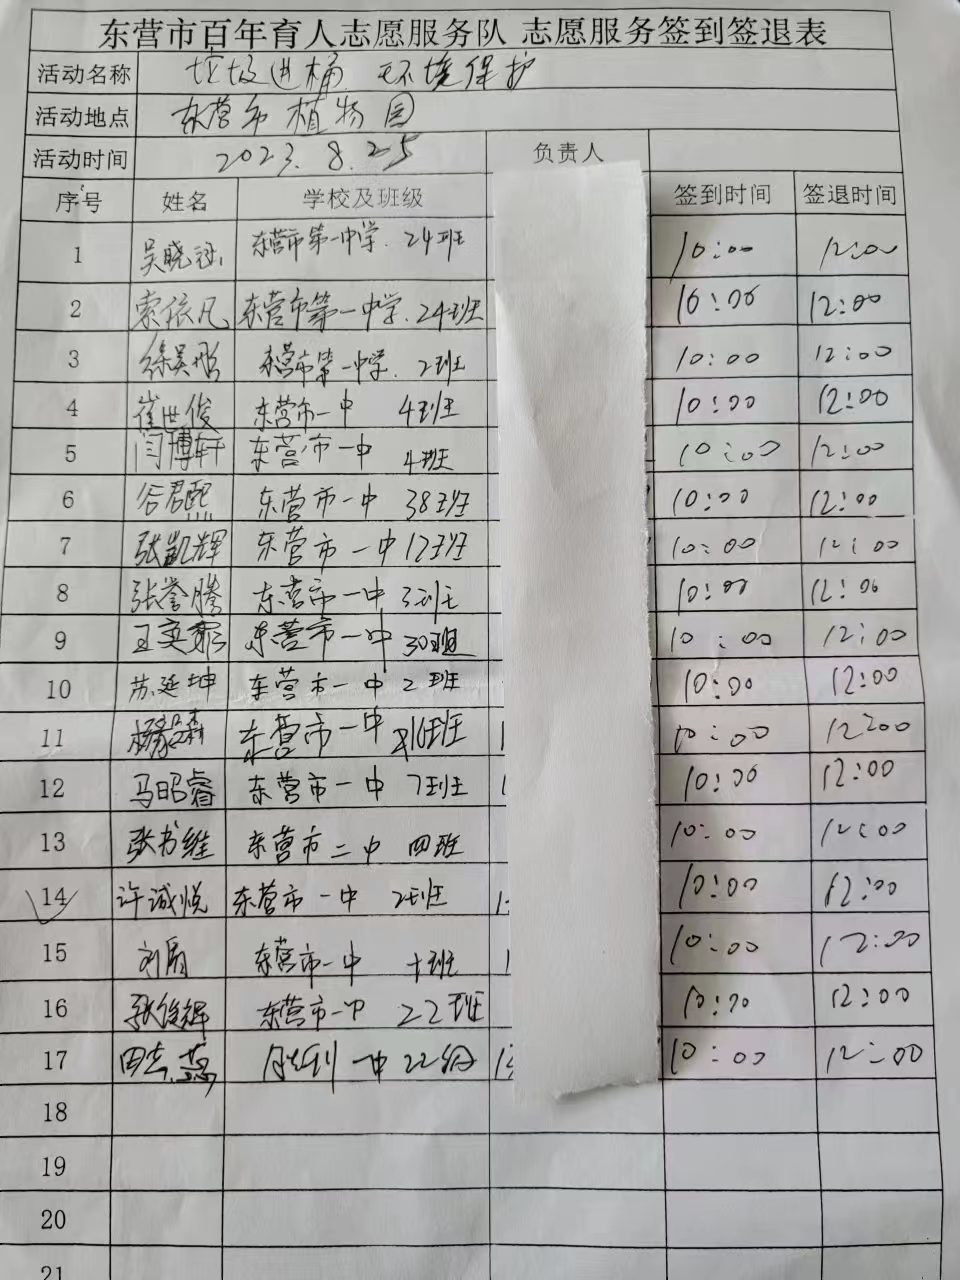 东营市百年育人志愿服务队 志愿服务签到签退表
活动名称 垃圾进桶 环境保护
活动地点 东营市植物园
活动时间 2023.8.25 负责人
序号 姓名 学校及班级 签到时间 签退时间
1 吴晓 东营市第一中学.24班 10:00 12:00
2 索依凡 东营市第一中学.24班 10:00 12:00
3 徐昊彤 东营市第一中学.2班 10:00 12:00
4 崔世俊 东营市一中 4班 10:00 12:00
5 闫博轩 东营市一中 4班 10:00 12:00
6 谷君熙 东营市一中 38班 10:00 12:00
7 张凯辉 东营市一中 12班 10:00 12:00
8 张誉腾 东营市一中 3班 10:00 12:00
9 王奕 东营市一中 30班 10:00 12:00
10 苏延坤 东营市一中 2班 10:00 12:00
11 东营市一中 16班 10:00 12:00
12 马昭睿 东营市一中 7班 10:00 12:00
13 张书维 东营市二中 四班 10:00 12:00
14 许诚悦 东营市一中 2班 10:00 12:00
15 刘 东营市一中 十班 10:00 12:00
16 张俊辉 东营市一中 22班 10:00 12:00
17 田志燕 胜利一中 22级 10:00 12:00
18
19
20
21